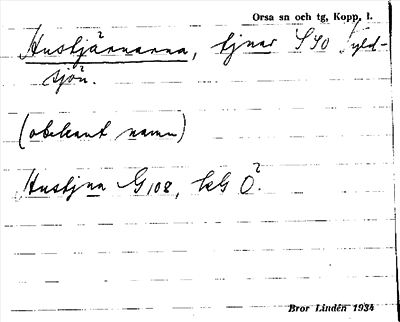 Orsa sn och tg, Kopp. l.
Hustjärnarna, tjnar SSO Fyld-
sjön.
(obekant namn)
Hustjna G108, kG Ö?.
Bror Lindén 1934